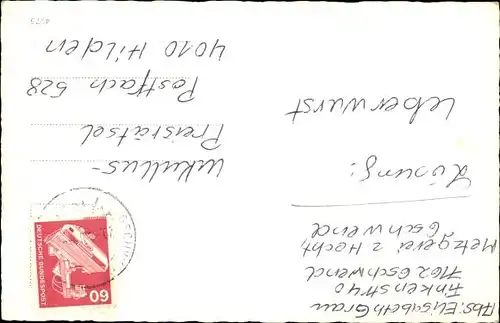 Abs: Elisabeth Grau
Finkenstr 40
7162 Gschwend
Metzgerei z Hecht,
Gschwend
Lösung:
Leberwurst
Lukullus-
Preisrätsel
Postfach 528
4010 Hilden
DEUTSCHE BUNDESPOST
60